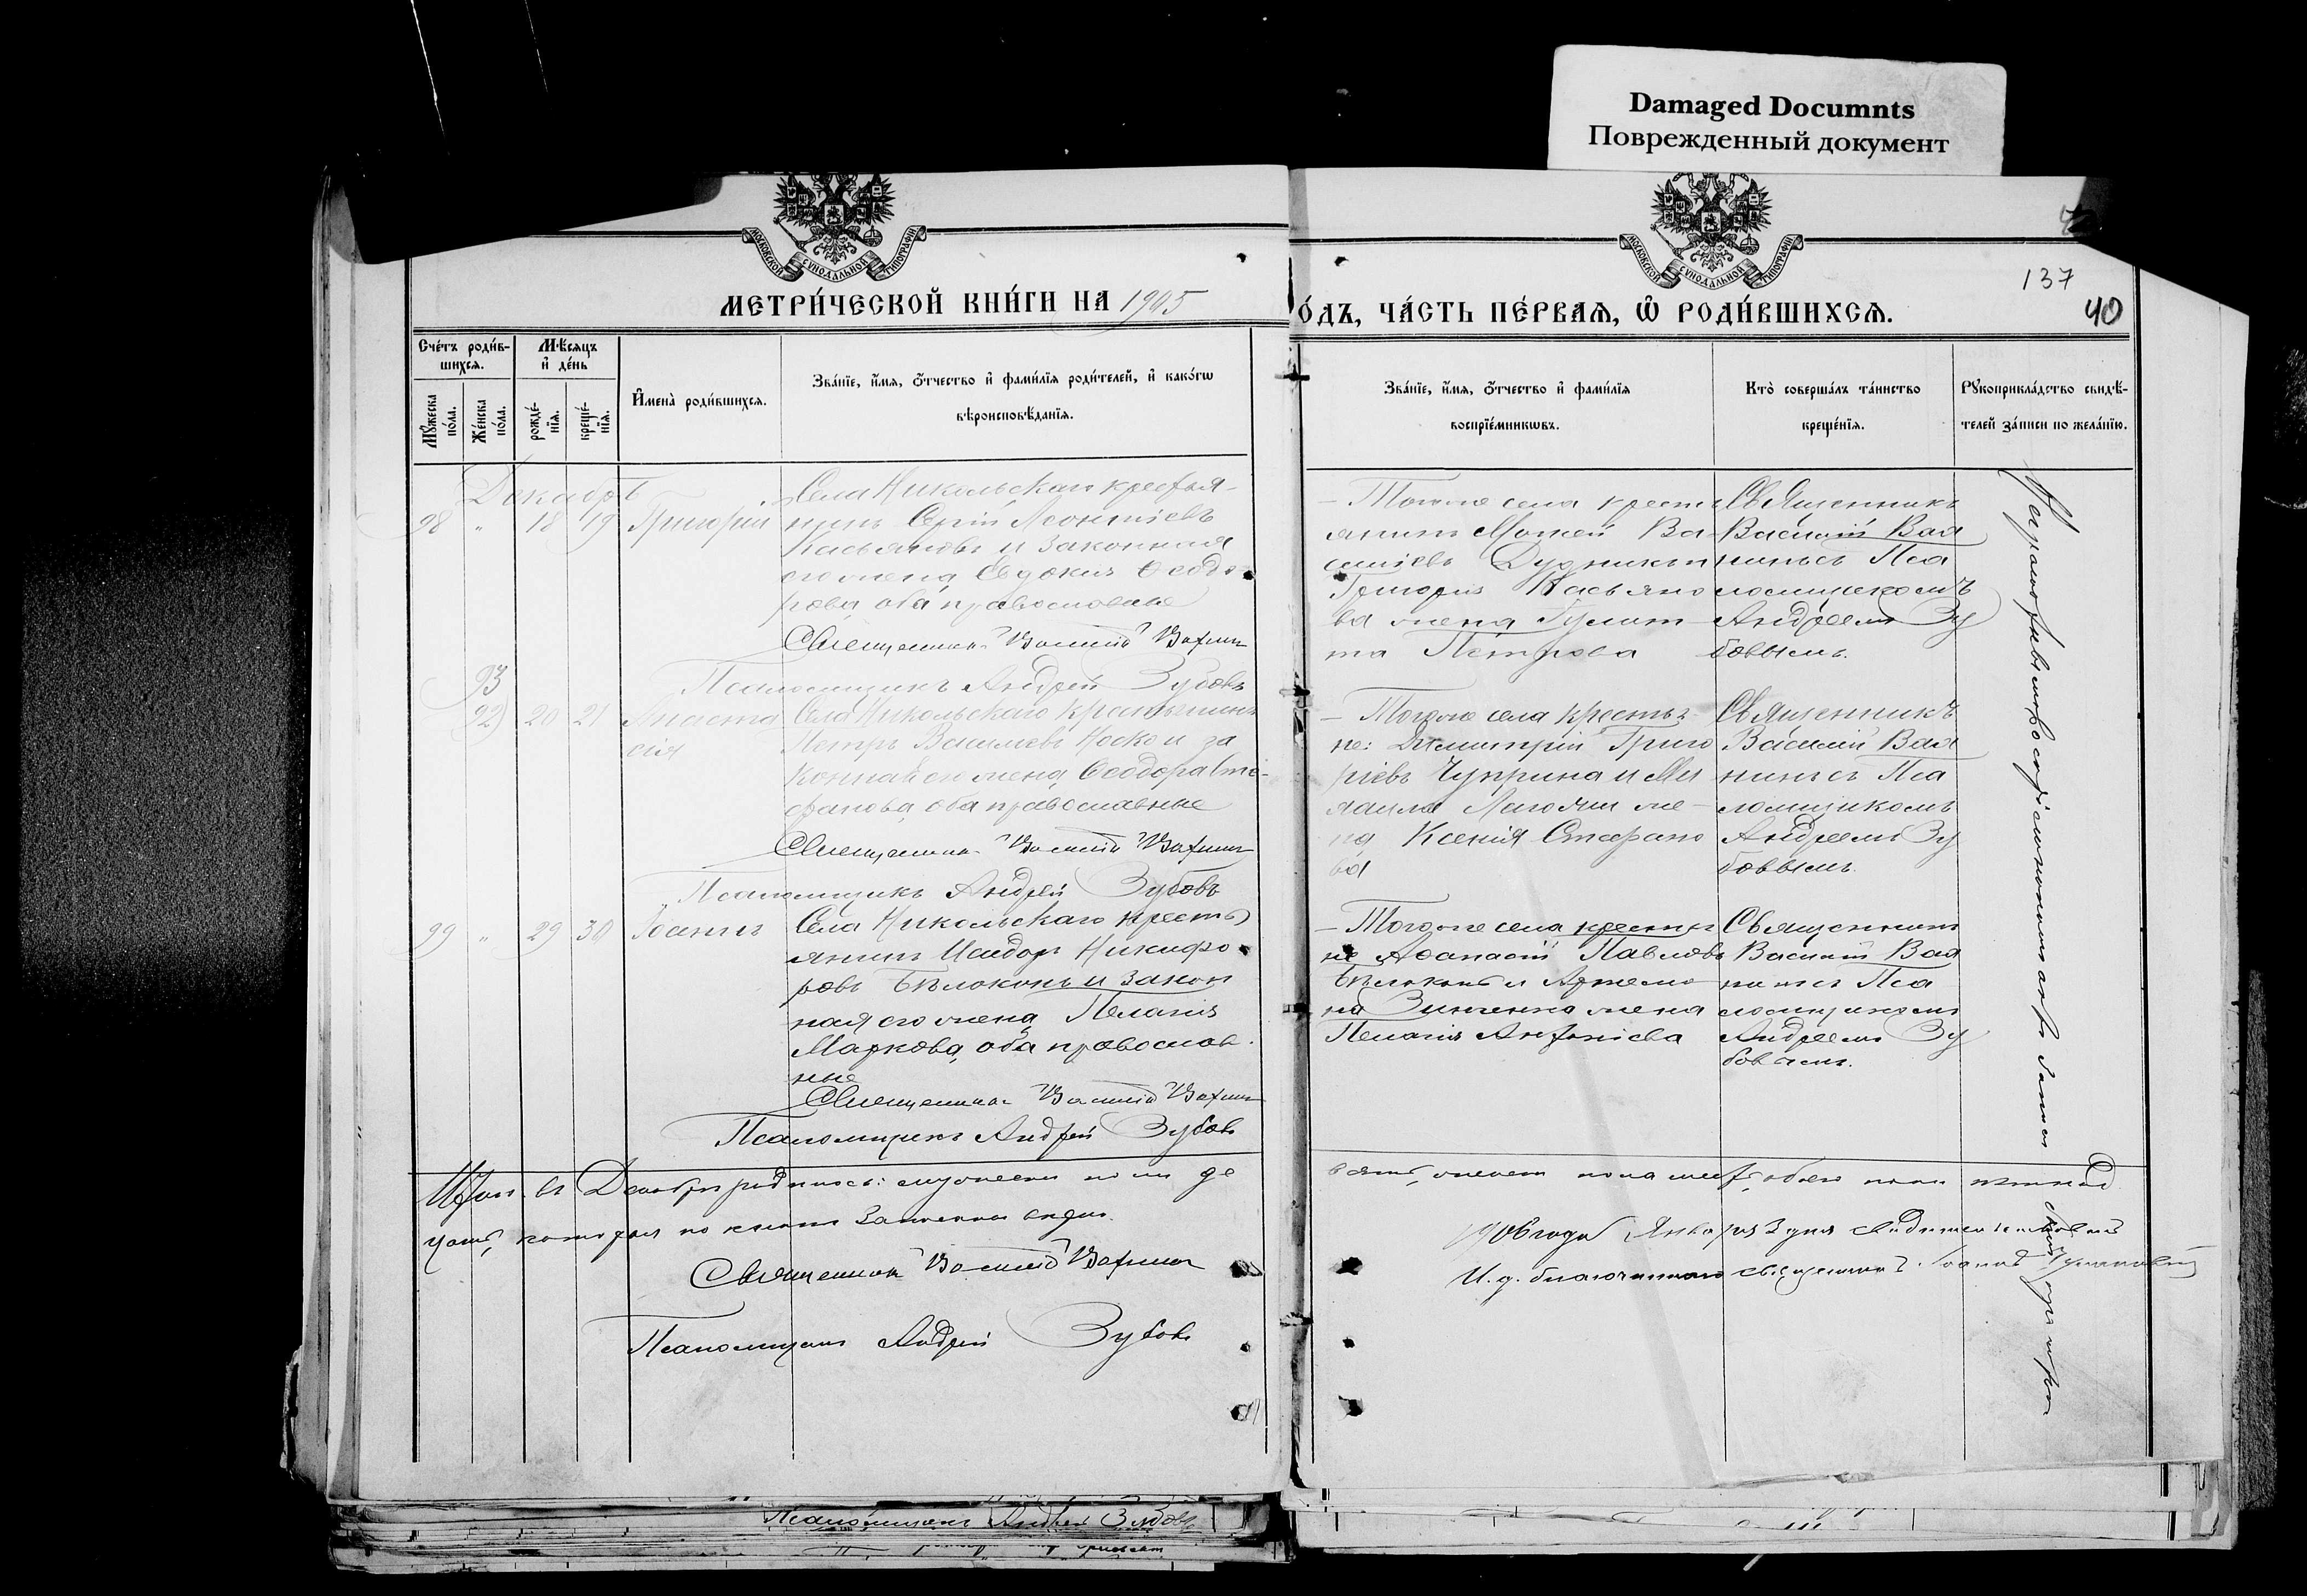 Damaged Documnts
Поврежденный документ
МОСКОВСКОЙ СУНОДАЛЬНОЙ ТИПОГРАФІИ
МОСКОВСКОЙ СУНОДАЛЬНОЙ ТИПОГРАФІИ
137
40
МЕТРИ́ЧЕСКОЙ КНИ́ГИ НА 1905
О́ДЪ, ЧА́СТЬ ПЕ́РВАѦ, Ѡ҆ РОДИ́ВШИХСѦ.
Сче́тъ роди́в-
шихсѧ.
Мѣ́сѧцъ
и҆ де́нь
Мꙋ́жеска по́ла.
Же́нска по́ла.
рожде́-
нїѧ.
креще́-
нїѧ.
И҆мена̀ роди́вшихсѧ.
Зва́нїе, и҆́мѧ, ѻ҆́тчество и҆ фами́лїѧ роди́телей, и҆ како́гѡ
вѣроисповѣ́данїѧ.
Зва́нїе, и҆́мѧ, ѻ҆́тчество и҆ фами́лїѧ
воспрїе́мникѡвъ.
Кто̀ соверша́лъ та́инство
креще́нїѧ.
Рꙋкоприкла́дство свидѣ́-
телей за́писи по жела́нїю.
Декабрь
98 " 18 19 Григорій
Села Никольскаго крестья-
нинъ Сергій Леонтіевъ
Касьяновъ и законная
его жена Евдокия Ѳеодо-
рова, оба православные
Священникъ Василій
Псаломщикъ Андрей Зубовъ
– Тогоже села крестья
янинъ Мокей Ва-
силіевъ Дудникъ и
Григорія Касьяно
ва жена Улит
та Петрова
Священникъ
Василій
нинъ съ Пса
ломщикомъ
Андреемъ Зу
бовымъ.
93
92 20 21 Анаста
сія
Села Никольскаго крестьянинъ
Петръ Василіевъ Носко и за
конная его жена Ѳеодора Сте-
фанова, оба православные
Священникъ Василій
Псаломщикъ Андрей Зубовъ
– Тогоже села крестья-
не: Димитрій Григо
ріевъ Чуприна и Ми
хаила же-
на Ксенія Стефано
ва
Священникъ
Василій
нинъ съ Пса
ломщикомъ
Андреемъ Зу
бовымъ.
99 " 29 30 Іоаннъ
Села Никольскаго кресть
янинъ Исидоръ Никифо
ровъ Бѣлоконь и закон
ная его жена Пелагія
Маркова, оба православ
ные
Священникъ Василій
Псаломщикъ Андрей Зубовъ
– Тогоже села крестья
не Аѳанасій Павловъ
Бѣлоконь и Артемо
на Зинченко жена
Пелагія Антоніева
Священникъ
Василій
нинъ съ Пса
ломщикомъ
Андреемъ Зу
бовымъ.
Итого въ Декабрѣ родилось: мужеска пола де
вять, женска пола шесть, обоего пола пятнад
цать, которые по книгѣ записаны вѣрно.
Священникъ Василій
Псаломщикъ Андрей Зубовъ
1906 года Января 3 дня свидетельствовалъ
И. д. благочиннаго священникъ Іоаннъ
Псаломщикъ Андрей Зубовъ